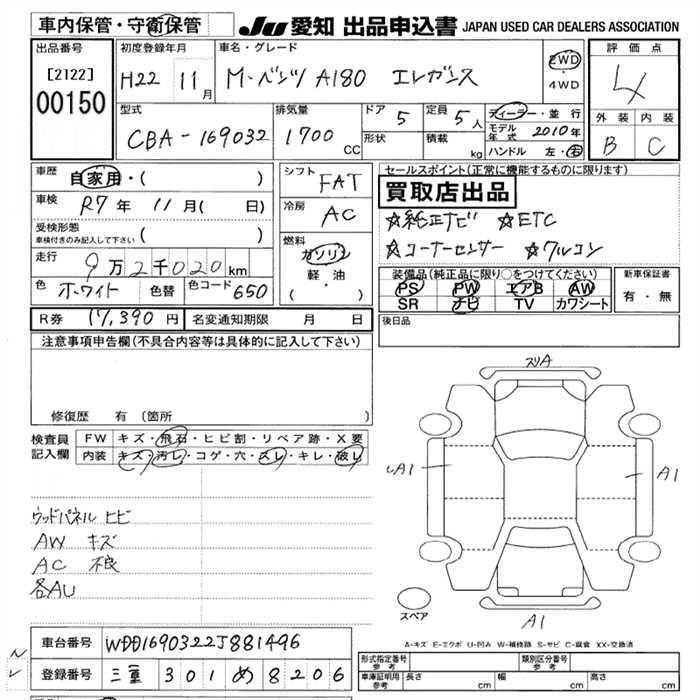 車内保管・守衛保管
JU 愛知 出品申込書 JAPAN USED CAR DEALERS ASSOCIATION
出品番号
[2122]
00150
初度登録年月
H22 11月
車名・グレード
M・ベンツ A180 エレガンス
2WD
・
4WD
評価点
4
外装 内装
B C
型式
CBA-169032
排気量
1700 CC
ドア 5
形状
定員 5人
積載 kg
ディーラー・並行
モデル年式 2010年
ハンドル 左・右
車歴
自家用・( )
車検 R7年 11月( 日)
受検形態
車検付きのみ記入して下さい ( )
走行 9万2千020km
色 ホワイト 色替 色コード 650
シフト FAT
冷房 AC
燃料
ガソリン
軽油
( ・ )
セールスポイント(正常に機能するものに限ります)
買取店出品
☆純正ナビ ☆ETC
☆コーナーセンサー ☆ワルコン
装備品(純正品に限り○をつけてください)
PS PW エアB AW
SR ナビ TV カワシート
新車保証書
有・無
R券 17,390円 名変通知期限 月 日
後日品
注意事項申告欄(不具合内容等は具体的に記入して下さい)
修復歴 有(箇所 )
検査員記入欄
FW キズ・飛石・ヒビ割・リペア跡・X要
内装 キズ・汚レ・コゲ・穴・スレ・キレ・破レ
ウッドパネル ヒビ
AW キズ
AC 不良
各AU
スリA
A1
A1
A1
スペア
A-キズ E-エクボ U-凹み W-補修跡 S-サビ C-腐食 XX-交換済
車台番号 WDD1690322J881496
登録番号 三重 301 め 8206
形式指定番号 参考
類別区分番号 参考
車庫証明用 参考 長さ cm 幅 cm 高さ cm